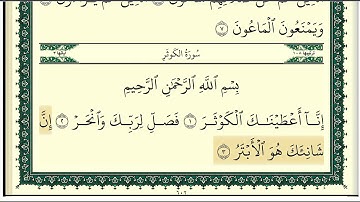 وَيَمْنَعُونَ ٱلْمَاعُونَ ٧
سُورَةُ الكَوْثَرِ
بِسْمِ ٱللَّهِ ٱلرَّحْمَٰنِ ٱلرَّحِيمِ
إِنَّآ أَعْطَيْنَٰكَ ٱلْكَوْثَرَ ١ فَصَلِّ لِرَبِّكَ وَٱنْحَرْ ٢ إِنَّ
شَانِئَكَ هُوَ ٱلْأَبْتَرُ ٣
٦٠٢